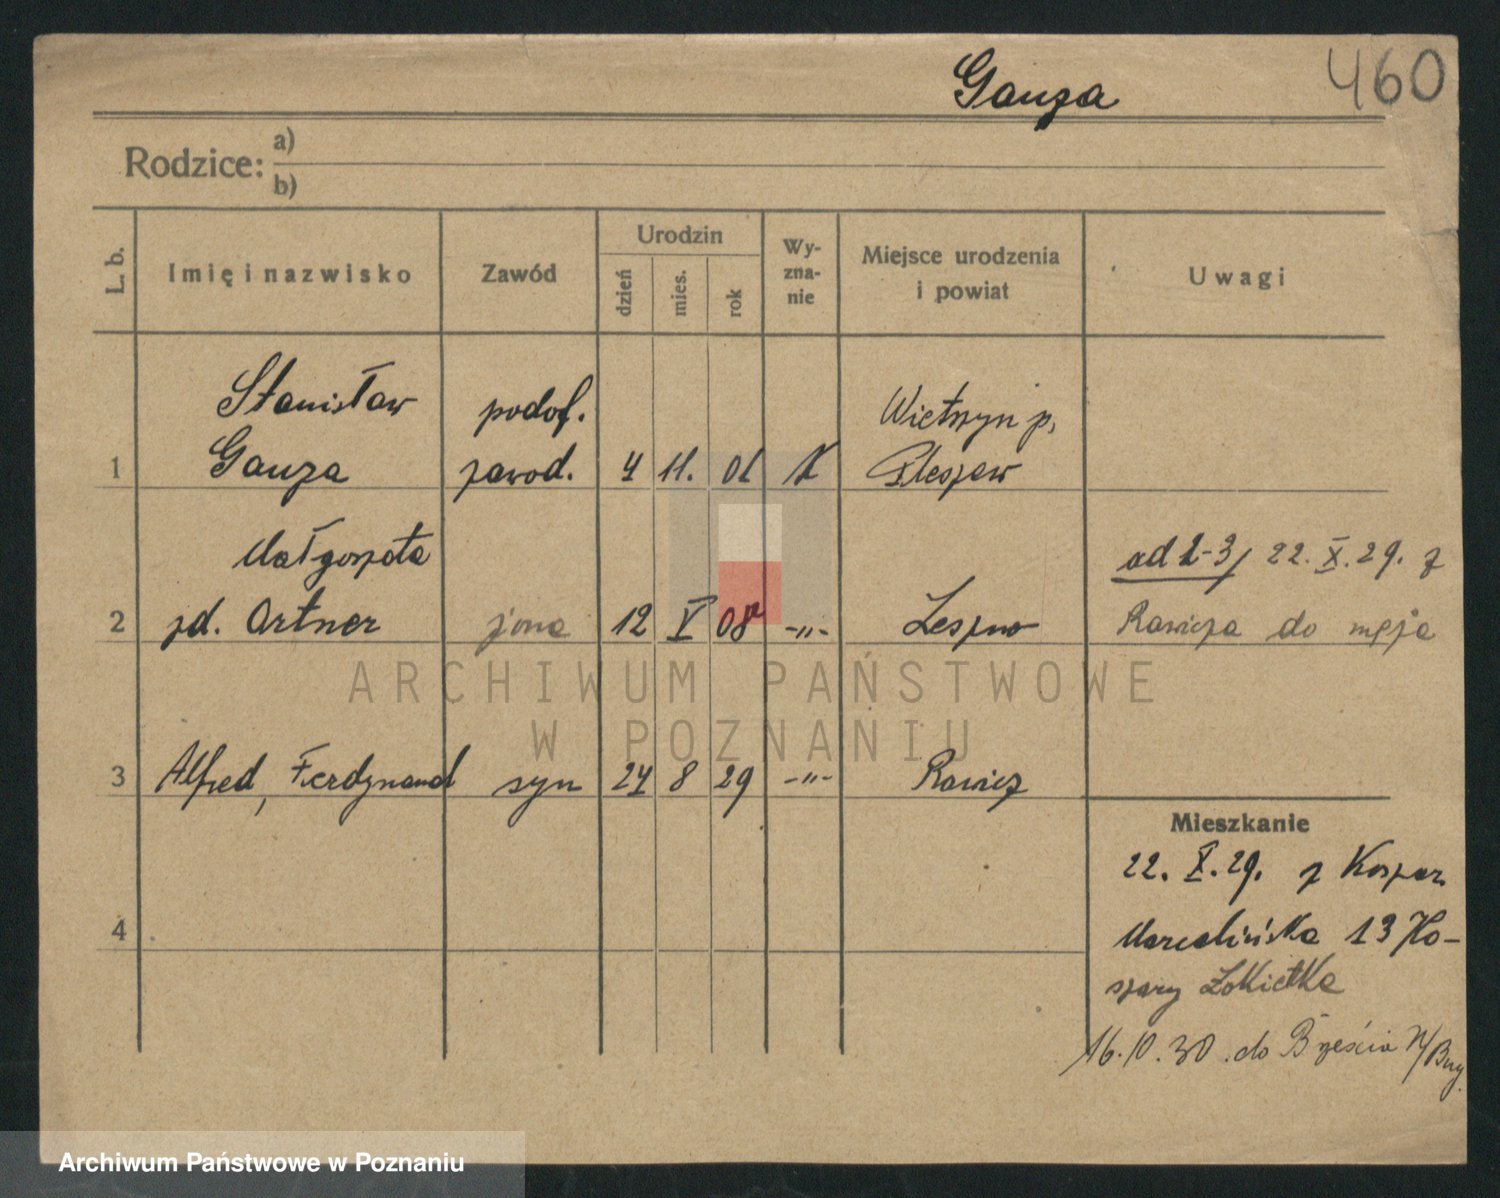 Gauza 460
Rodzice: a)
b)
L. b. Imię i nazwisko Zawód Urodzin dzień mies. rok Wy-zna-nie Miejsce urodzenia i powiat Uwagi
Stanisław podof. Wietrzyn p.
1 Gauza zawod. 4 11. 01 K Pleszew
Małgorzata ad 2-3/ 22. X. 29. z
2 zd. Ortner żona 12 V 08 -"- Leszno Rawicza do męża
3 Alfred, Ferdynand syn 24 8 29 -"- Rawicz
4
Mieszkanie
22. X. 29. z Koszar
Marcelińska 13 Ko-
szary Łokietka
16. 10. 30. do Brześcia N/Bug.
ARCHIWUM PAŃSTWOWE
W POZNANIU
Archiwum Państwowe w Poznaniu